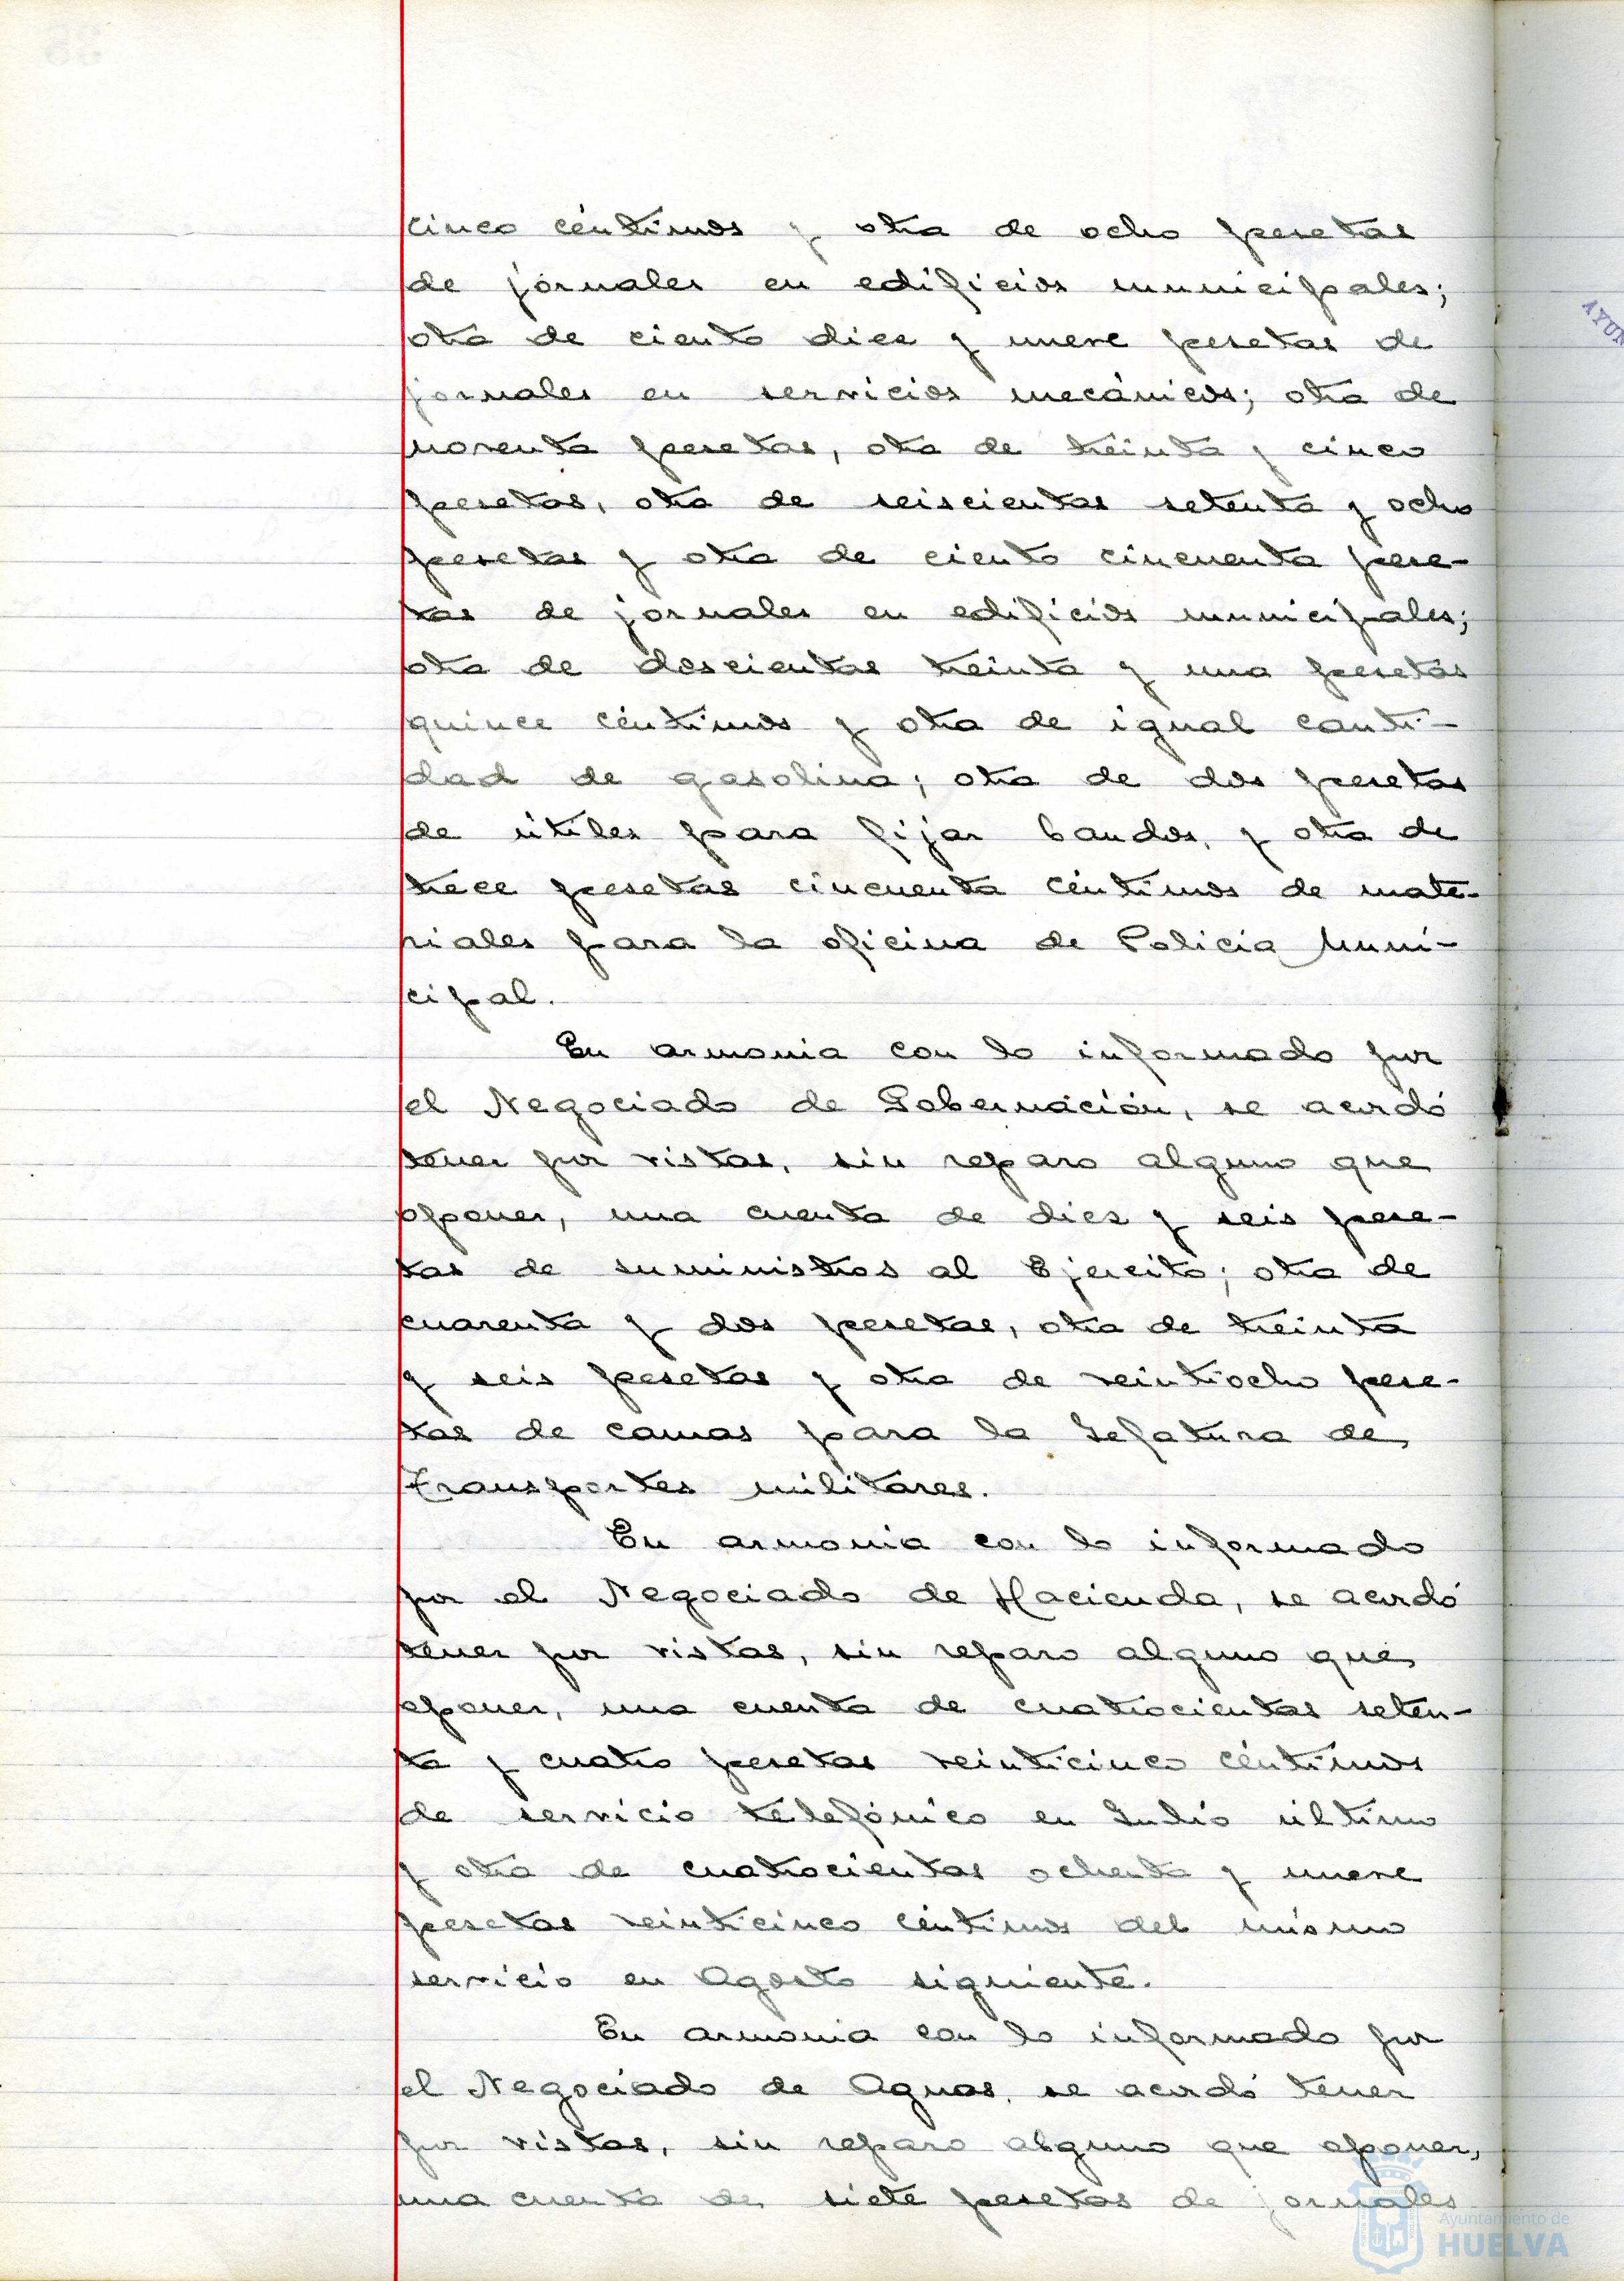 cinco céntimos y otra de ocho pesetas
de jornales en edificios municipales;
otra de ciento diez y nueve pesetas de
jornales en servicios mecánicos; otra de
noventa pesetas, otra de treinta y cinco
pesetas, otra de seiscientas setenta y ocho
pesetas y otra de ciento cincuenta pese-
tas de jornales en edificios municipales;
otra de doscientas treinta y una pesetas
quince céntimos y otra de igual canti-
dad de gasolina; otra de dos pesetas
de útiles para fijar bandos, y otra de
trece pesetas cincuenta céntimos de mate-
riales para la oficina de Policía Muni-
cipal.
En armonia con lo informado por
el Negociado de Gobernación, se acordó
tener por vistas, sin reparo alguno que
oponer, una cuenta de diez y seis pese-
tas de suministros al Ejercito; otra de
cuarenta y dos pesetas, otra de treinta
y seis pesetas y otra de veintiocho pese-
tas de camas para la Jefatura de
Transportes militares.
En armonia con lo informado
por el Negociado de Hacienda, se acordó
tener por vistas, sin reparo alguno que
oponer, una cuenta de cuatrocientas seten-
ta y cuatro pesetas veinticinco céntimos
de servicio telefónico en Julio último
y otra de cuatrocientas ochenta y nueve
pesetas veinticinco céntimos del mismo
servicio en Agosto siguiente.
En armonia con lo informado por
el Negociado de Aguas, se acordó tener
por vistas, sin reparo alguno que oponer,
una cuenta de siete pesetas de jornales
AYUN
Ayuntamiento de
HUELVA